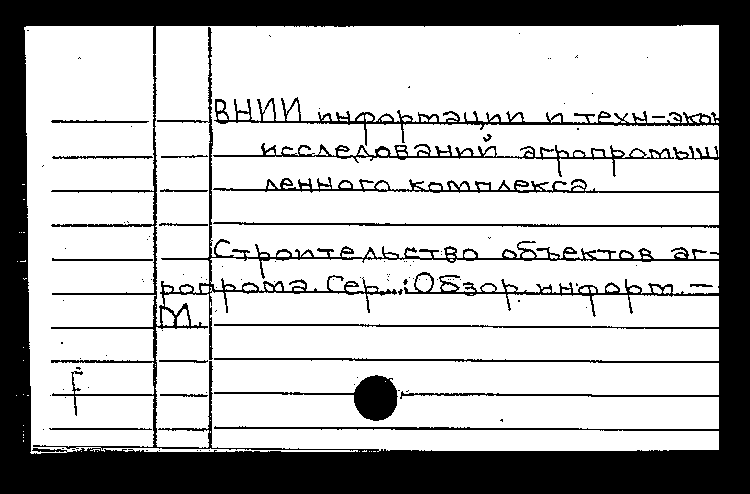 ВНИИ информации и техн-экон
исследований агропромыш
ленного комплекса.
Строительство объектов аг-
ропрома. Сер...: Обзор. информ. —
М.